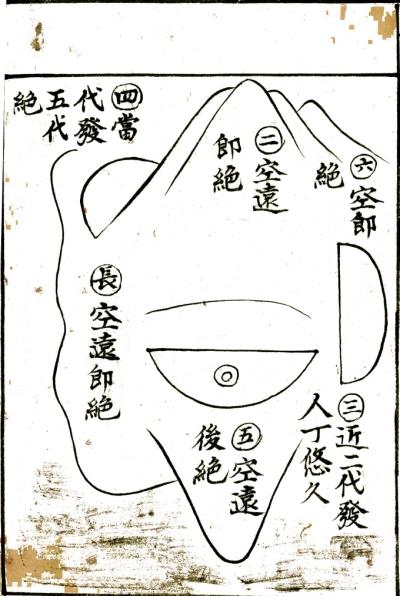 ㊃當
代發
五代
絕
㊁空遠
即絕
㊅空即
絕
㊂近二代發
人丁悠久
㊄空遠
後絕
長空遠即絕